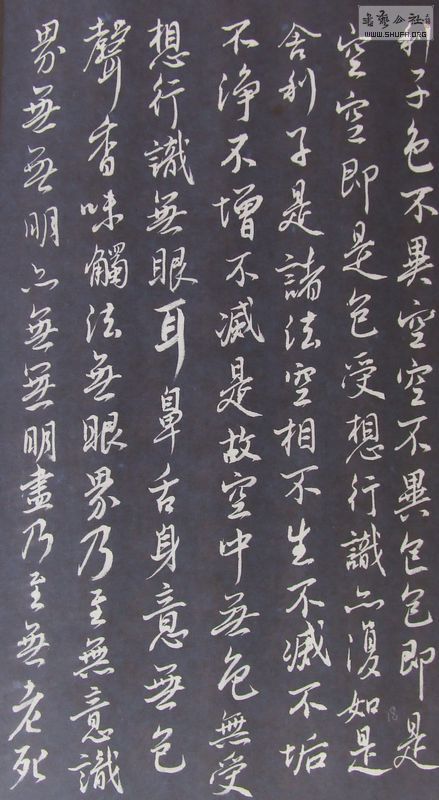 利子色不異空空不異色色即是
空空即是色受想行識亦復如是
舍利子是諸法空相不生不滅不垢
不淨不增不減是故空中無色無受
想行識無眼耳鼻舌身意無色
聲香味觸法無眼界乃至無意識
界無無明亦無無明盡乃至無老死
書藝公社
WWW.SHUFA.ORG